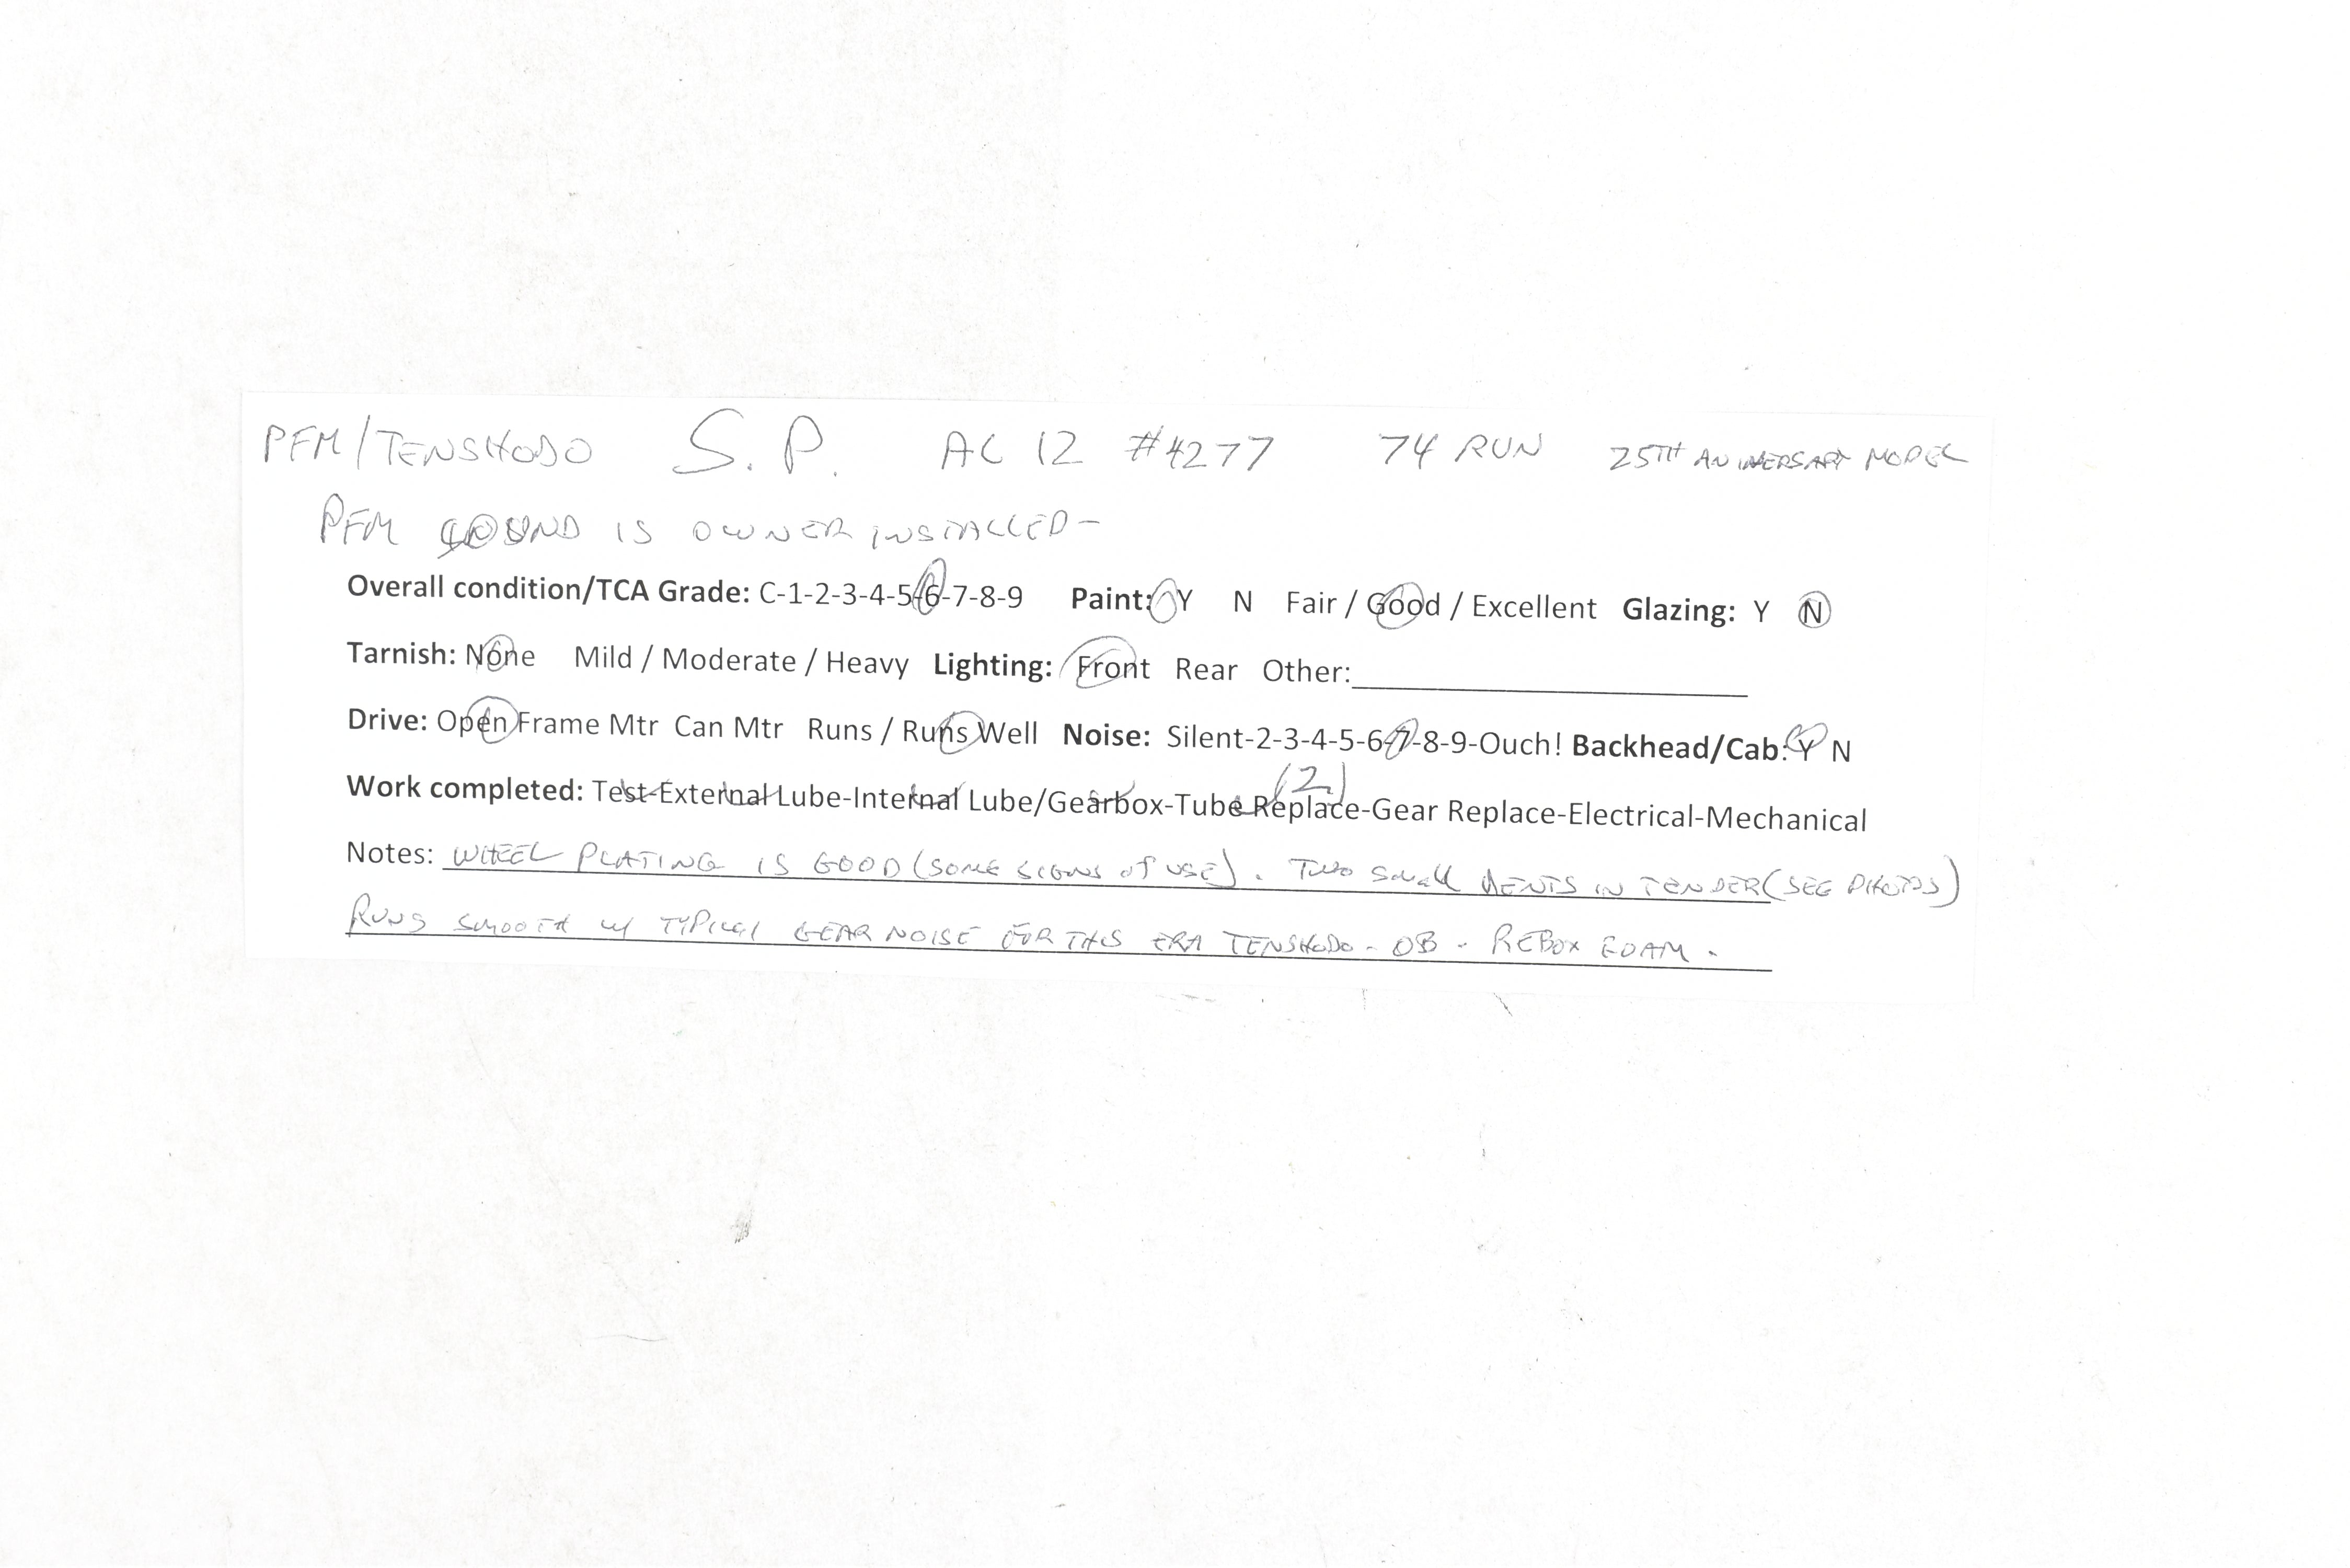 PFM/TENSHODO S.P. AC 12 #4277 74 RUN 25TH ANIVERSARY MODEL
PFM SOUND IS OWNER INSTALLED-
Overall condition/TCA Grade: C-1-2-3-4-5-6-7-8-9 Paint: Y N Fair / Good / Excellent Glazing: Y N
Tarnish: None Mild / Moderate / Heavy Lighting: Front Rear Other:
Drive: Open Frame Mtr Can Mtr Runs / Runs Well Noise: Silent-2-3-4-5-6-7-8-9-Ouch! Backhead/Cab: Y N
(2)
Work completed: Test-External Lube-Internal Lube/Gearbox-Tube Replace-Gear Replace-Electrical-Mechanical
Notes: WHEEL PLATING IS GOOD (SOME SIGNS of USE). Two small DENTS IN TENDER (SEE PHOTOS)
RUNS SMOOTH w/ TYPICAL GEAR NOISE FOR THIS ERA TENSHODO - OB - REBOX FOAM.